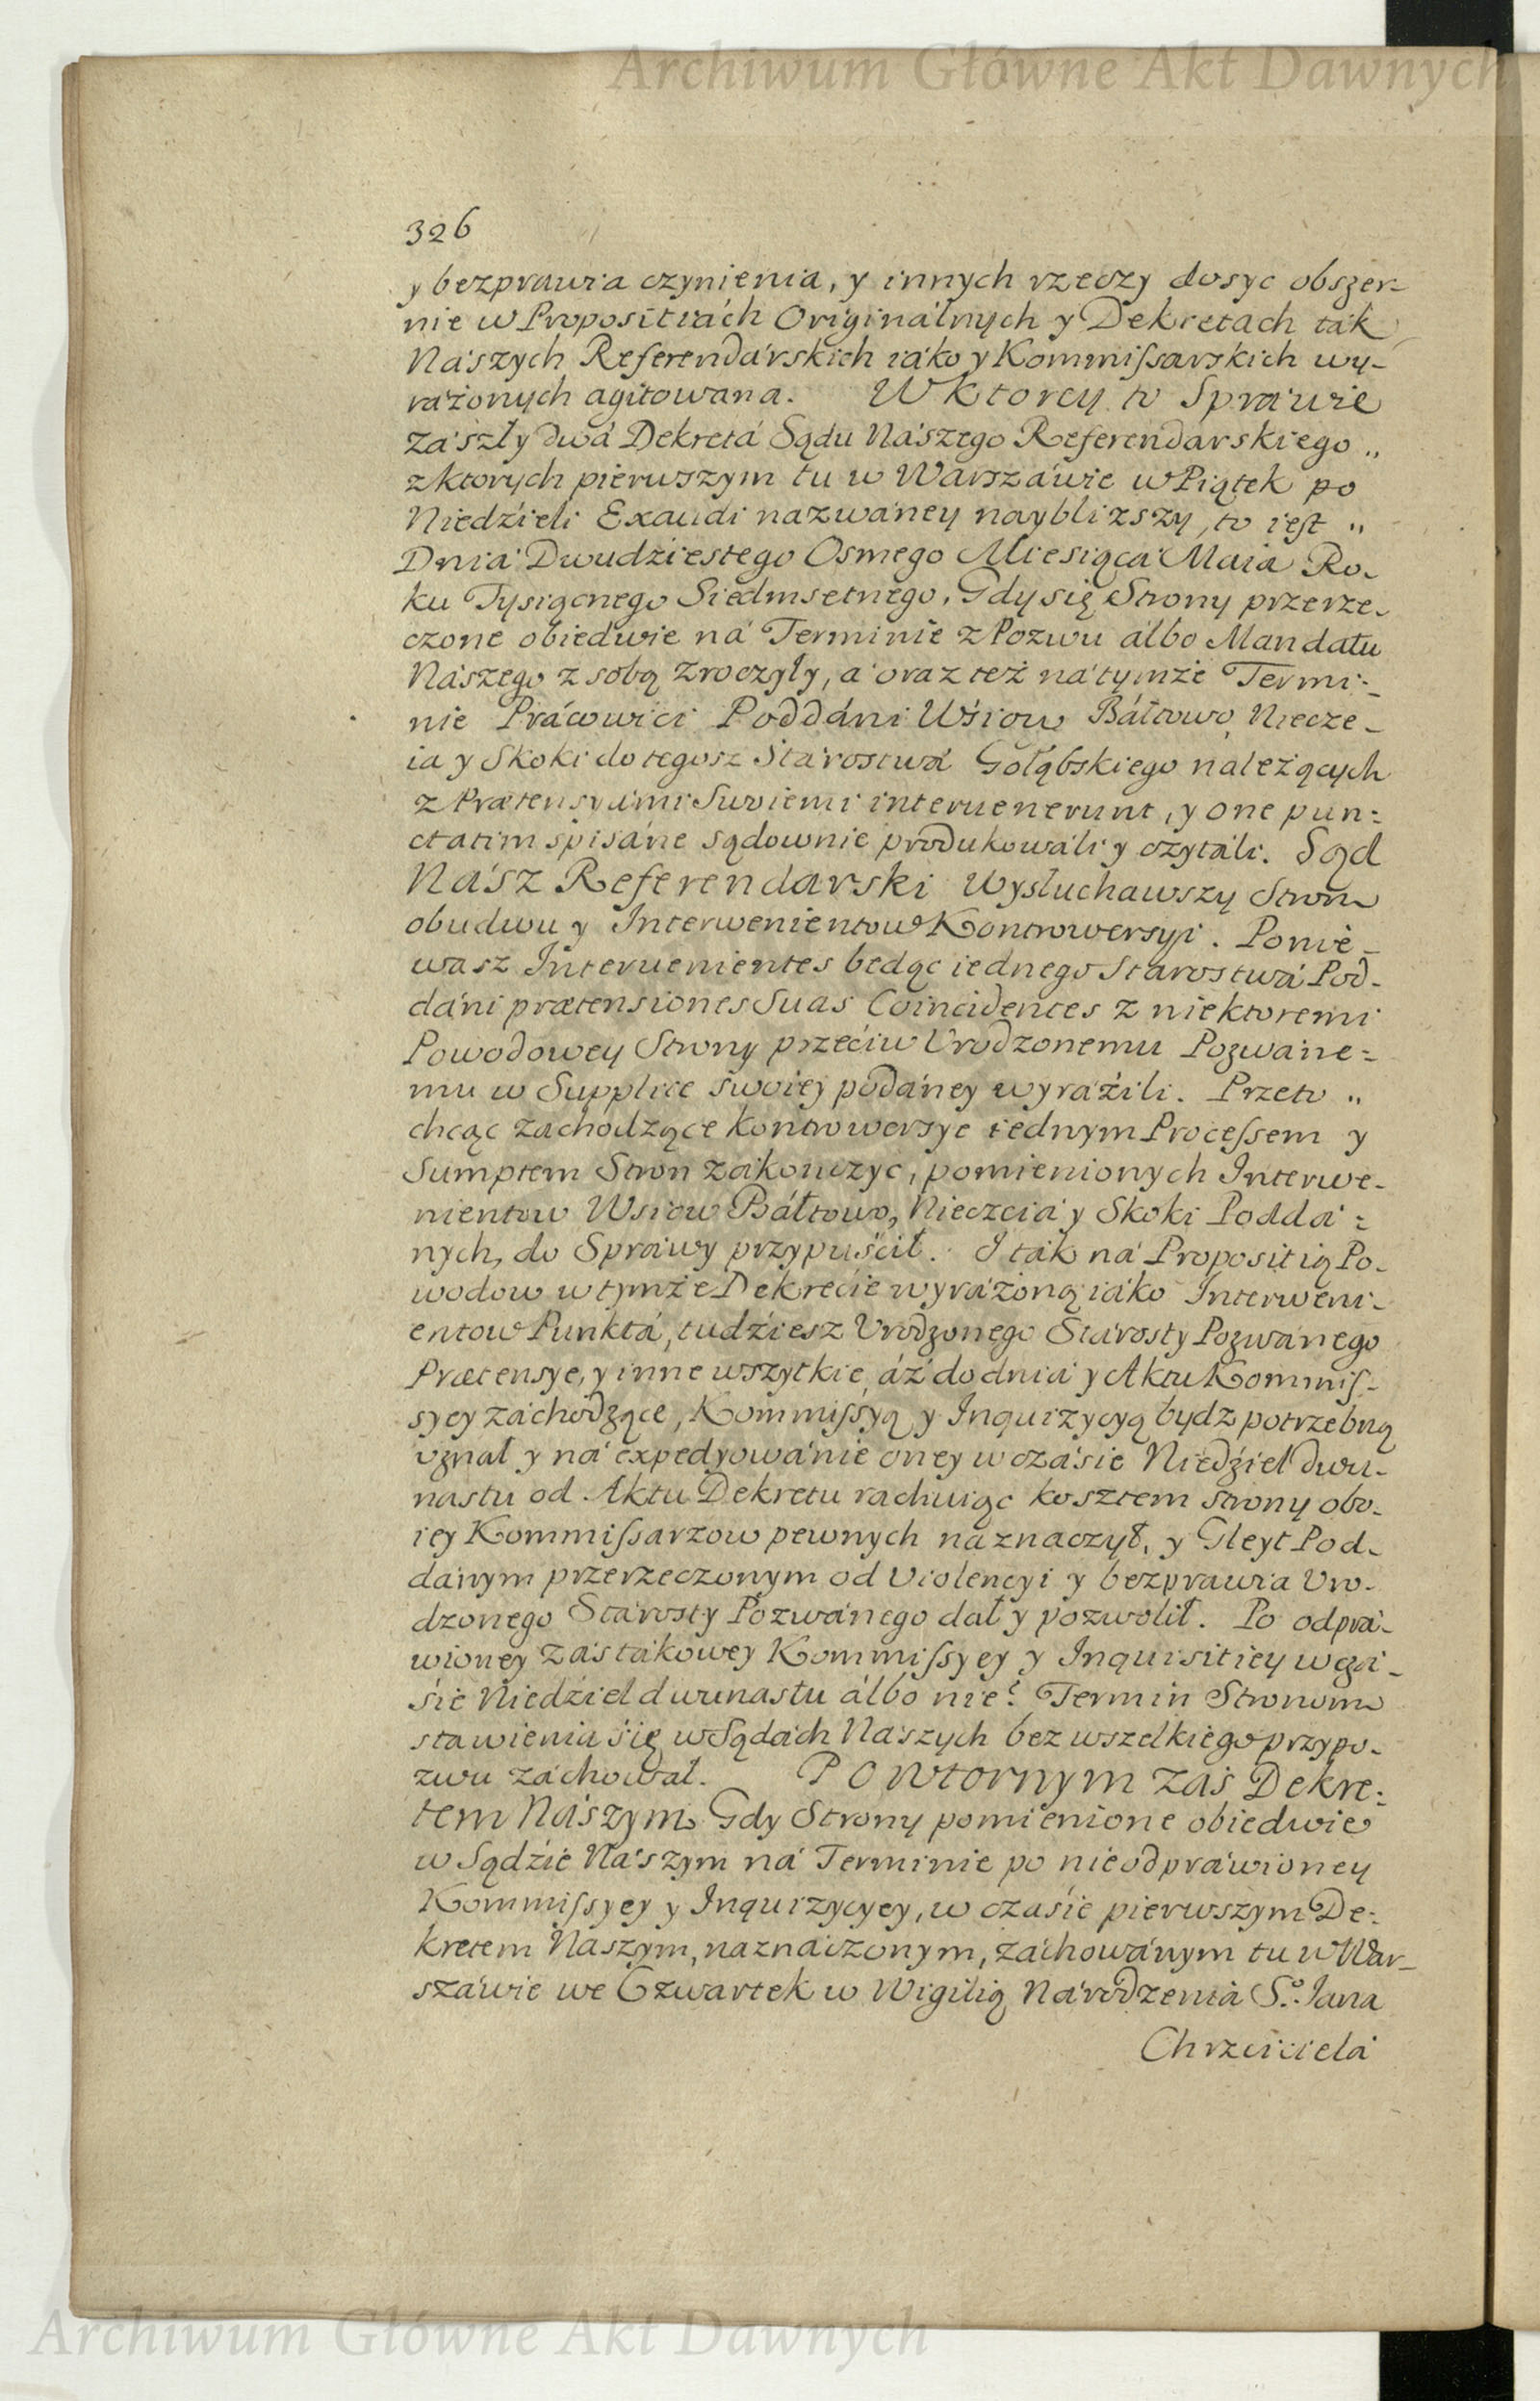 Archiwum Główne Akt Dawnych
326
y bezprawia czynienia, y innych rzeczy dosyc obszer-
nie w Propositiách Originálnych y Dekretach ták
Nászych Referendárskich iáko y Kommissarskich wy-
ráżonych agitowana. W ktorey to Spráwie
zászły dwá Dekretá Sądu Nászego Referendarskiego „
z ktorych pierwszym tu w Warszáwie w Piątek po
Niedzieli Exaudi nazwáney naybliższy, to iest „
Dniá Dwudziestego Osmego Miesiącá Maiá Ro-
ku Tysiącnego Siedmsetnego, Gdy się Strony przerze-
czone obiedwie ná Terminie z Pozwu álbo Mandatu
Nászego z sobą zroczyły, á oraz też ná tymże Termi-
nie Prácowici Poddáni Wśiow Báłtowo, Niecze-
ia y Skoki do tegosz Stárostwá Gołąbskiego należących
z Prætensyámi Swoiemi interuenerunt, y one pun-
ctatim spisáne sądownie produkowáli y czytáli. Sąd
Nász Referendarski Wysłuchawszy Stron
obudwu y Interwenientow Kontrowersyi. Ponie-
wasz Interuenientes będąc iednego Starostwá Pod-
dáni prætensiones Suas Coincidentes z niektoremi
Powodowey Strony przećiw Vrodzonemu Pozwáne-
mu w Supplice swoiey podáney wyráźili. Przeto „
chcąc zachodzące kontrowersye iednym Processem y
Sumptem Stron zákonczyc, pomienionych Interwe-
nientow Wsiow Báłtowo, Nieczciá y Skoki Poddá-
nych, do Spráwy przypuśćił. I ták ná Propositią Po-
wodow w tymże Dekrećie wyráżoną iáko Interweni-
entow Punktá, tudziesz Vrodzonego Stárosty Pozwánego
Prætensye, y inne wszytkie, áż do dniá y Aktu Kommis-
syey záchodzące, Kommissyą y Inquizycyą bydz potrzebną
vznał y ná expedyowánie oney w czásie Niedziel dwu-
nastu od Aktu Dekretu rachuiąc kosztem strony obo-
iey Kommissarzow pewnych náznaczył, y Gleyt Pod-
dánym przerzeczonym od Violencyi y bezprawia Vro-
dzonego Stárosty Pozwánego dał y pozwolił. Po odprá-
wioney zás tákowey Kommissyey y Inquisitiey w czá-
sie Niedziel dwunastu álbo nie? Termin Stronom
stawienia się w Sądách Nászych bez wszelkiego przypo-
zwu záchował. Powtornym zás Dekre-
tem Nászym Gdy Strony pomienione obiedwie
w Sądzie Nászym ná Terminie po nieodpráwioney
Kommissyey y Inquizycyey, w czásie pierwszym De-
kretem Naszym, naznáczonym, záchowánym tu w War-
száwie we Czwartek w Wigilią Národzenia S.º Jana
Chrzćiciela
Archiwum Główne Akt Dawnych